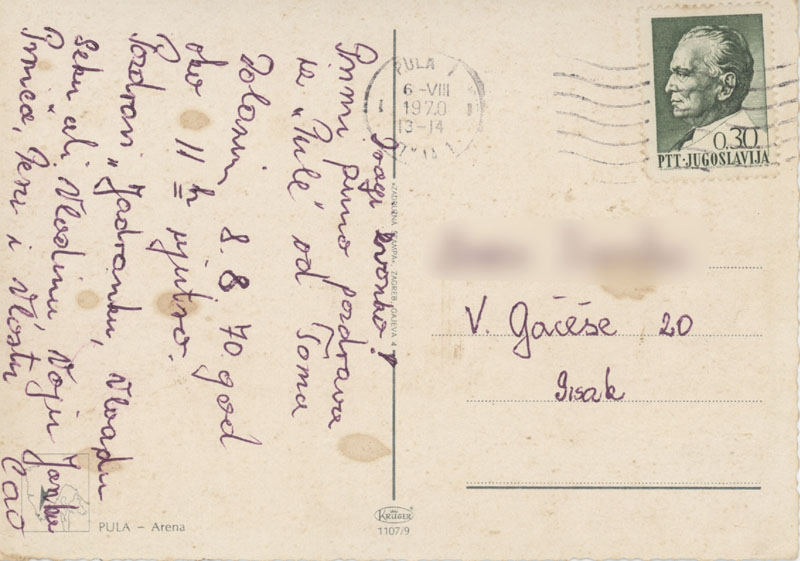 Dragi Zvonko!
Primi puno pozdrava
iz „Pule" od Toma
Polazim 8. 8 70. god
oko 11 h ujutro.
Pozdravi „Jadranku, Vladu
Seku ali Vladinu, Voju
Princa, i Vlastu
Cao
PULA
6-VIII
1970
13-14
0.30
PTT·JUGOSLAVIJA
V. Gačeše 20
Sisak
ZAGREB, GAJEVA 4
PULA – Arena
KRÜGER
1107/9